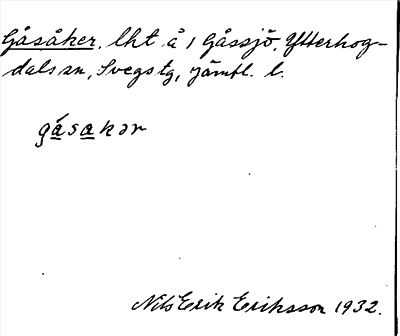 Gåsåker, lht å 1 Gåssjö, Ytterhog-
dals sn, Svegs tg, Jämtl. l.
gásakər
Nils Erik Eriksson 1932.